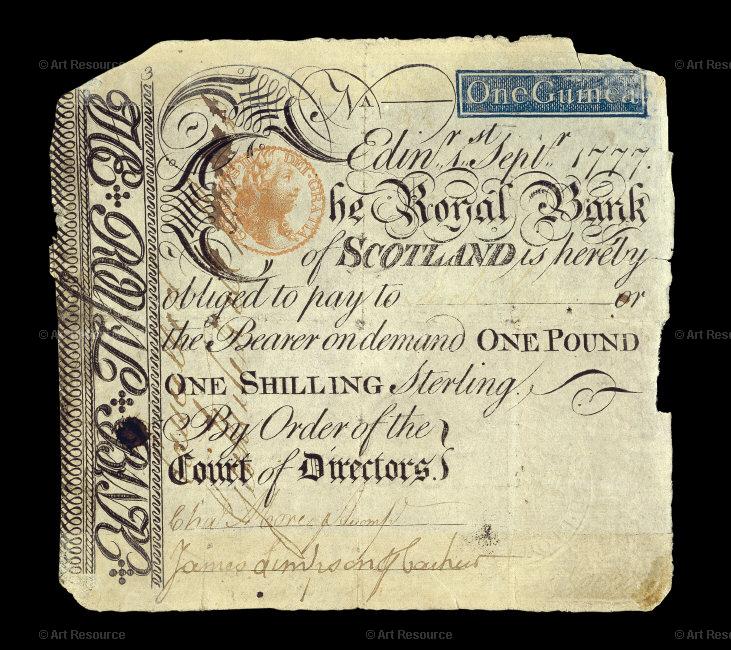 © Art Resource © Art Resource © Art Resource
No
One Guinea
Edinr. 1st Septr. 1777.
DEI·GRATIA
The Royal Bank
of SCOTLAND is hereby
obliged to pay to or
the Bearer on demand ONE POUND
ONE SHILLING Sterling.
By Order of the
Court of Directors.
Chas
James
THE ROYAL BANK
© Art Resource © Art Resource © Art Resource
© Art Resource © Art Resource © Art Resource